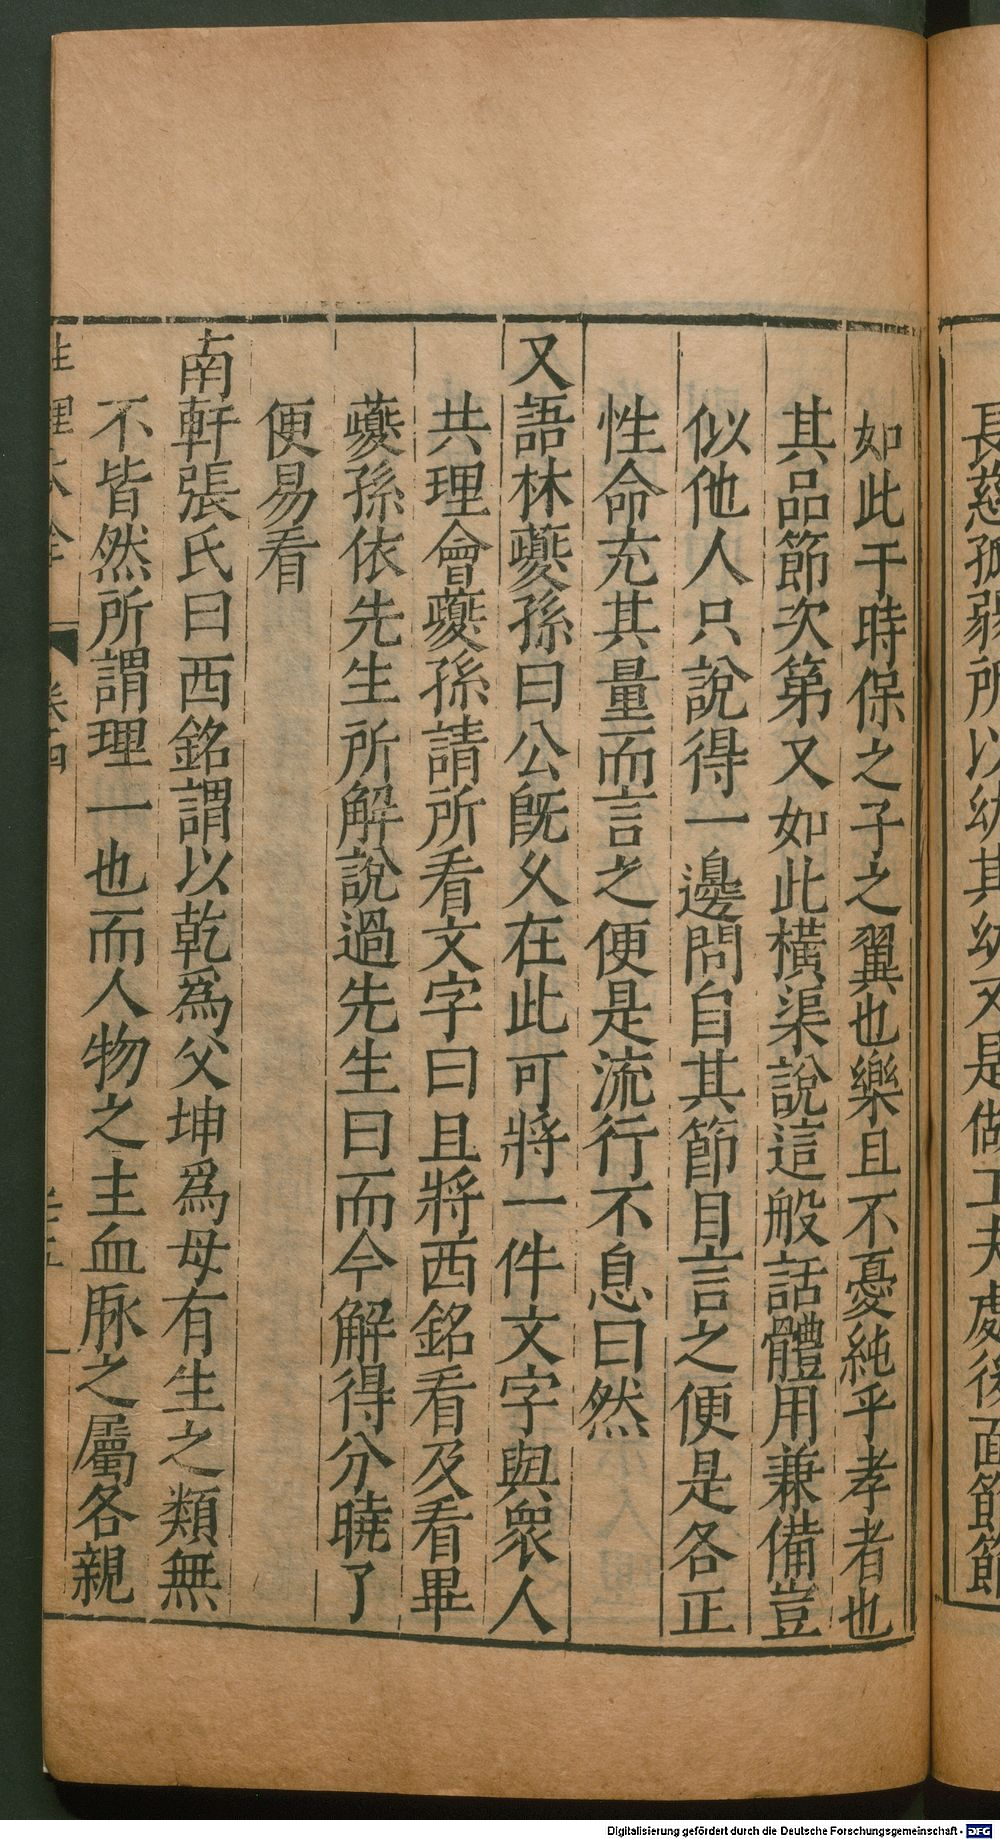 長慈孤弱所以幼其幼又是做工夫處後面節節
如此于時保之子之翼也樂且不憂純乎孝者也
其品節次第又如此橫渠說這般話體用兼備豈
似他人只說得一邊問自其節目言之便是各正
性命充其量而言之便是流行不息曰然
又語林夔孫曰公旣久在此可將一件文字與衆人
共理會夔孫請所看文字曰且將西銘看及看畢
夔孫依先生所解說過先生曰而今解得分曉了
便易看
南軒張氏曰西銘謂以乾爲父坤爲母有生之類無
不皆然所謂理一也而人物之主血脉之屬各親
性理大全
卷四
Digitalisierung gefördert durch die Deutsche Forschungsgemeinschaft - DFG